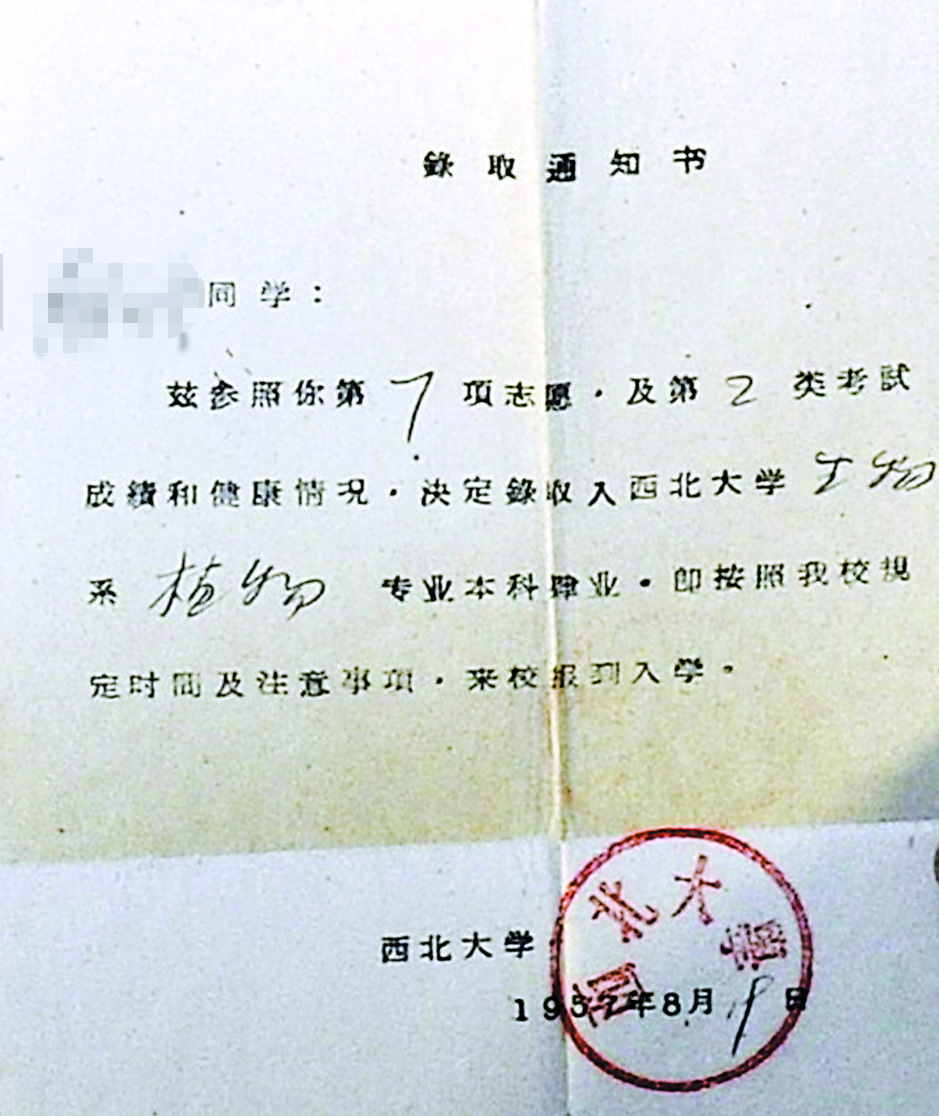 錄取通知书
同学：
兹参照你第7項志愿，及第2类考試
成績和健康情况，决定錄取入西北大学生物
系植物专业本科肄业。即按照我校規
定时間及注意事項，来校报到入学。
西北大学
1957年8月19日
西北大學